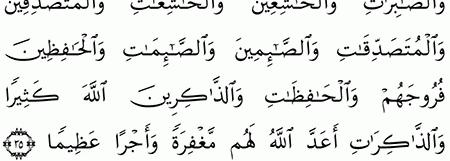 وَٱلصَّٰبِرَٰتِ وَٱلْخَٰشِعِينَ وَٱلْخَٰشِعَٰتِ وَٱلْمُتَصَدِّقِينَ
وَٱلْمُتَصَدِّقَٰتِ وَٱلصَّٰٓئِمِينَ وَٱلصَّٰٓئِمَٰتِ وَٱلْحَٰفِظِينَ
فُرُوجَهُمْ وَٱلْحَٰفِظَٰتِ وَٱلذَّٰكِرِينَ ٱللَّهَ كَثِيرًا
وَٱلذَّٰكِرَٰتِ أَعَدَّ ٱللَّهُ لَهُم مَّغْفِرَةً وَأَجْرًا عَظِيمًا ﴿٣٥﴾